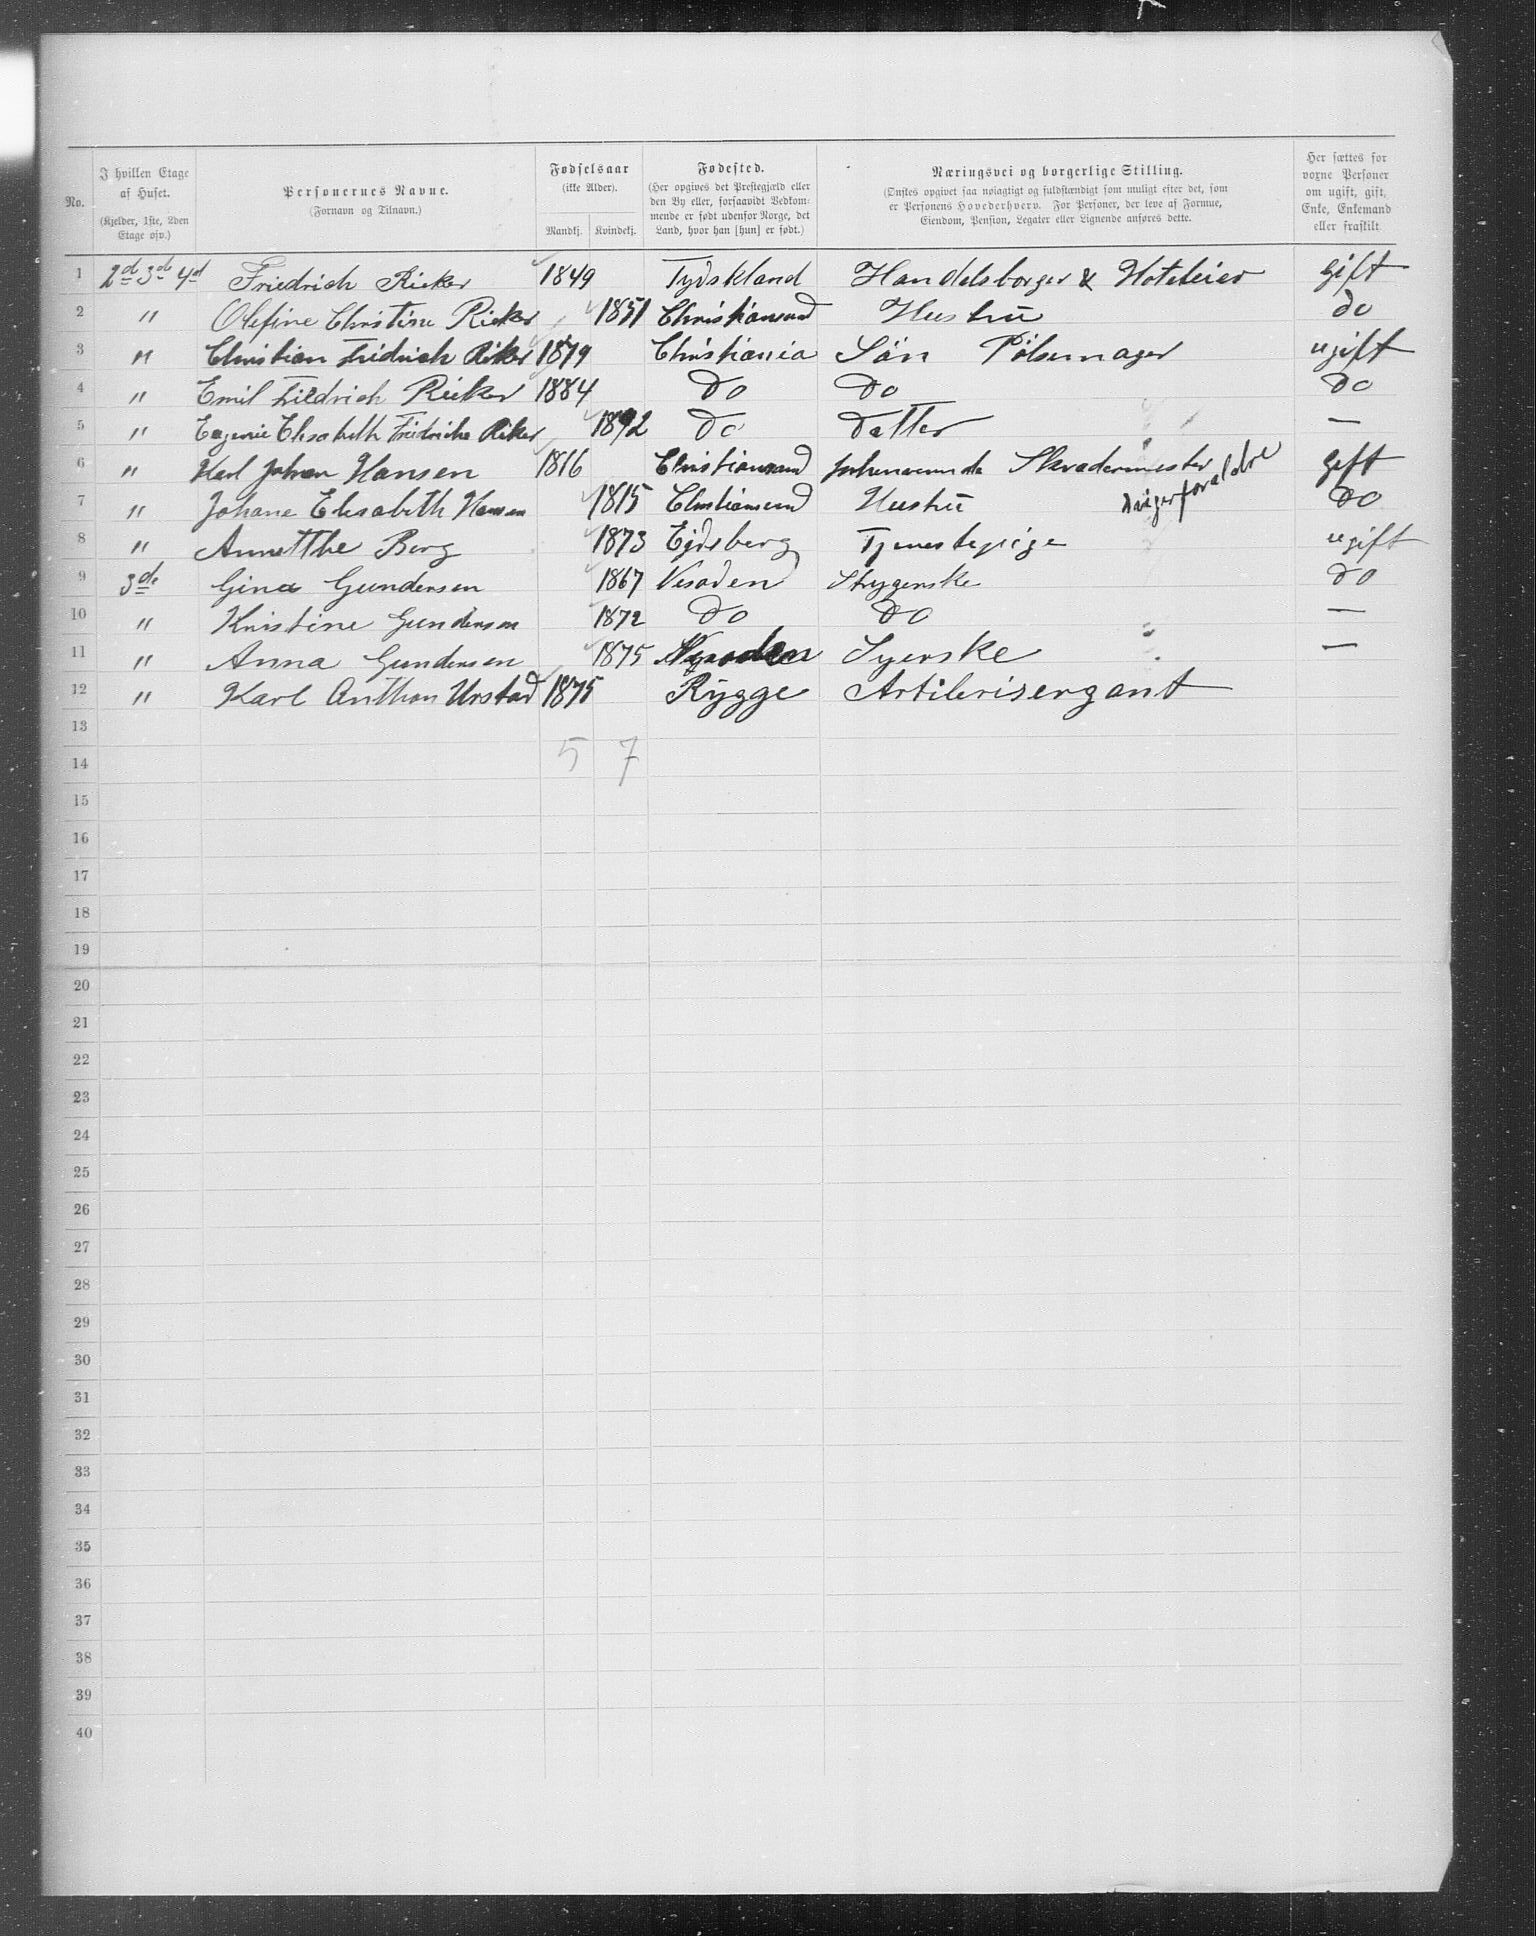 No. I hvilken Etage af Huset. (Kjelder, 1ste, 2den Etage osv.) Personernes Navne. (Fornavn og Tilnavn.) Fødselsaar (ikke Alder). Mandkj. Kvindekj. Fødested. (Her opgives det Prestegjæld eller den By eller, forsaavidt Vedkommende er født udenfor Norge, det Land, hvor han [hun] er født.) Næringsvei og borgerlige Stilling. (Ønskes opgivet saa nøiagtigt og fuldstændigt som muligt efter det, som er Personens Hovederhverv. For Personer, der leve af Formue, Eiendom, Pension, Legater eller Lignende anføres dette. Her sættes for voxne Personer om ugift, gift, Enke, Enkemand eller fraskilt.
1 2d 3d 4d Friedrich Rieker 1849 Tydskland Handelsborger & Hoteleier gift
2 " Olefine Christine Rieker 1851 Christiansund Hustru do
3 " Christian Fridrich Riker 1879 Christiania Sön Pölsemager ugift
4 " Emil Friedrich Rieker 1884 Do Do Do
5 " Eugenie Elisabeth Fridricke Riker 1892 Do Datter —
6 " Karl Johan Hansen 1816 Christiansund Skradermester gift
7 " Johane Elisabeth Hansen 1815 Christiansund Hustru Svigerforaldre Do
8 " Annetthe Berg 1873 Ejdsberg Tjenestepige ugift
9 3de Gina Gundersen 1867 Nesoden Strygerske Do
10 " Kristine Gundersen 1872 Do Do —
11 " Anna Gundersen 1875 Syerske —
12 " Karl Anthon Urstad 1875 Rygge Artilerisergant
13
14 5 7
15
16
17
18
19
20
21
22
23
24
25
26
27
28
29
30
31
32
33
34
35
36
37
38
39
40